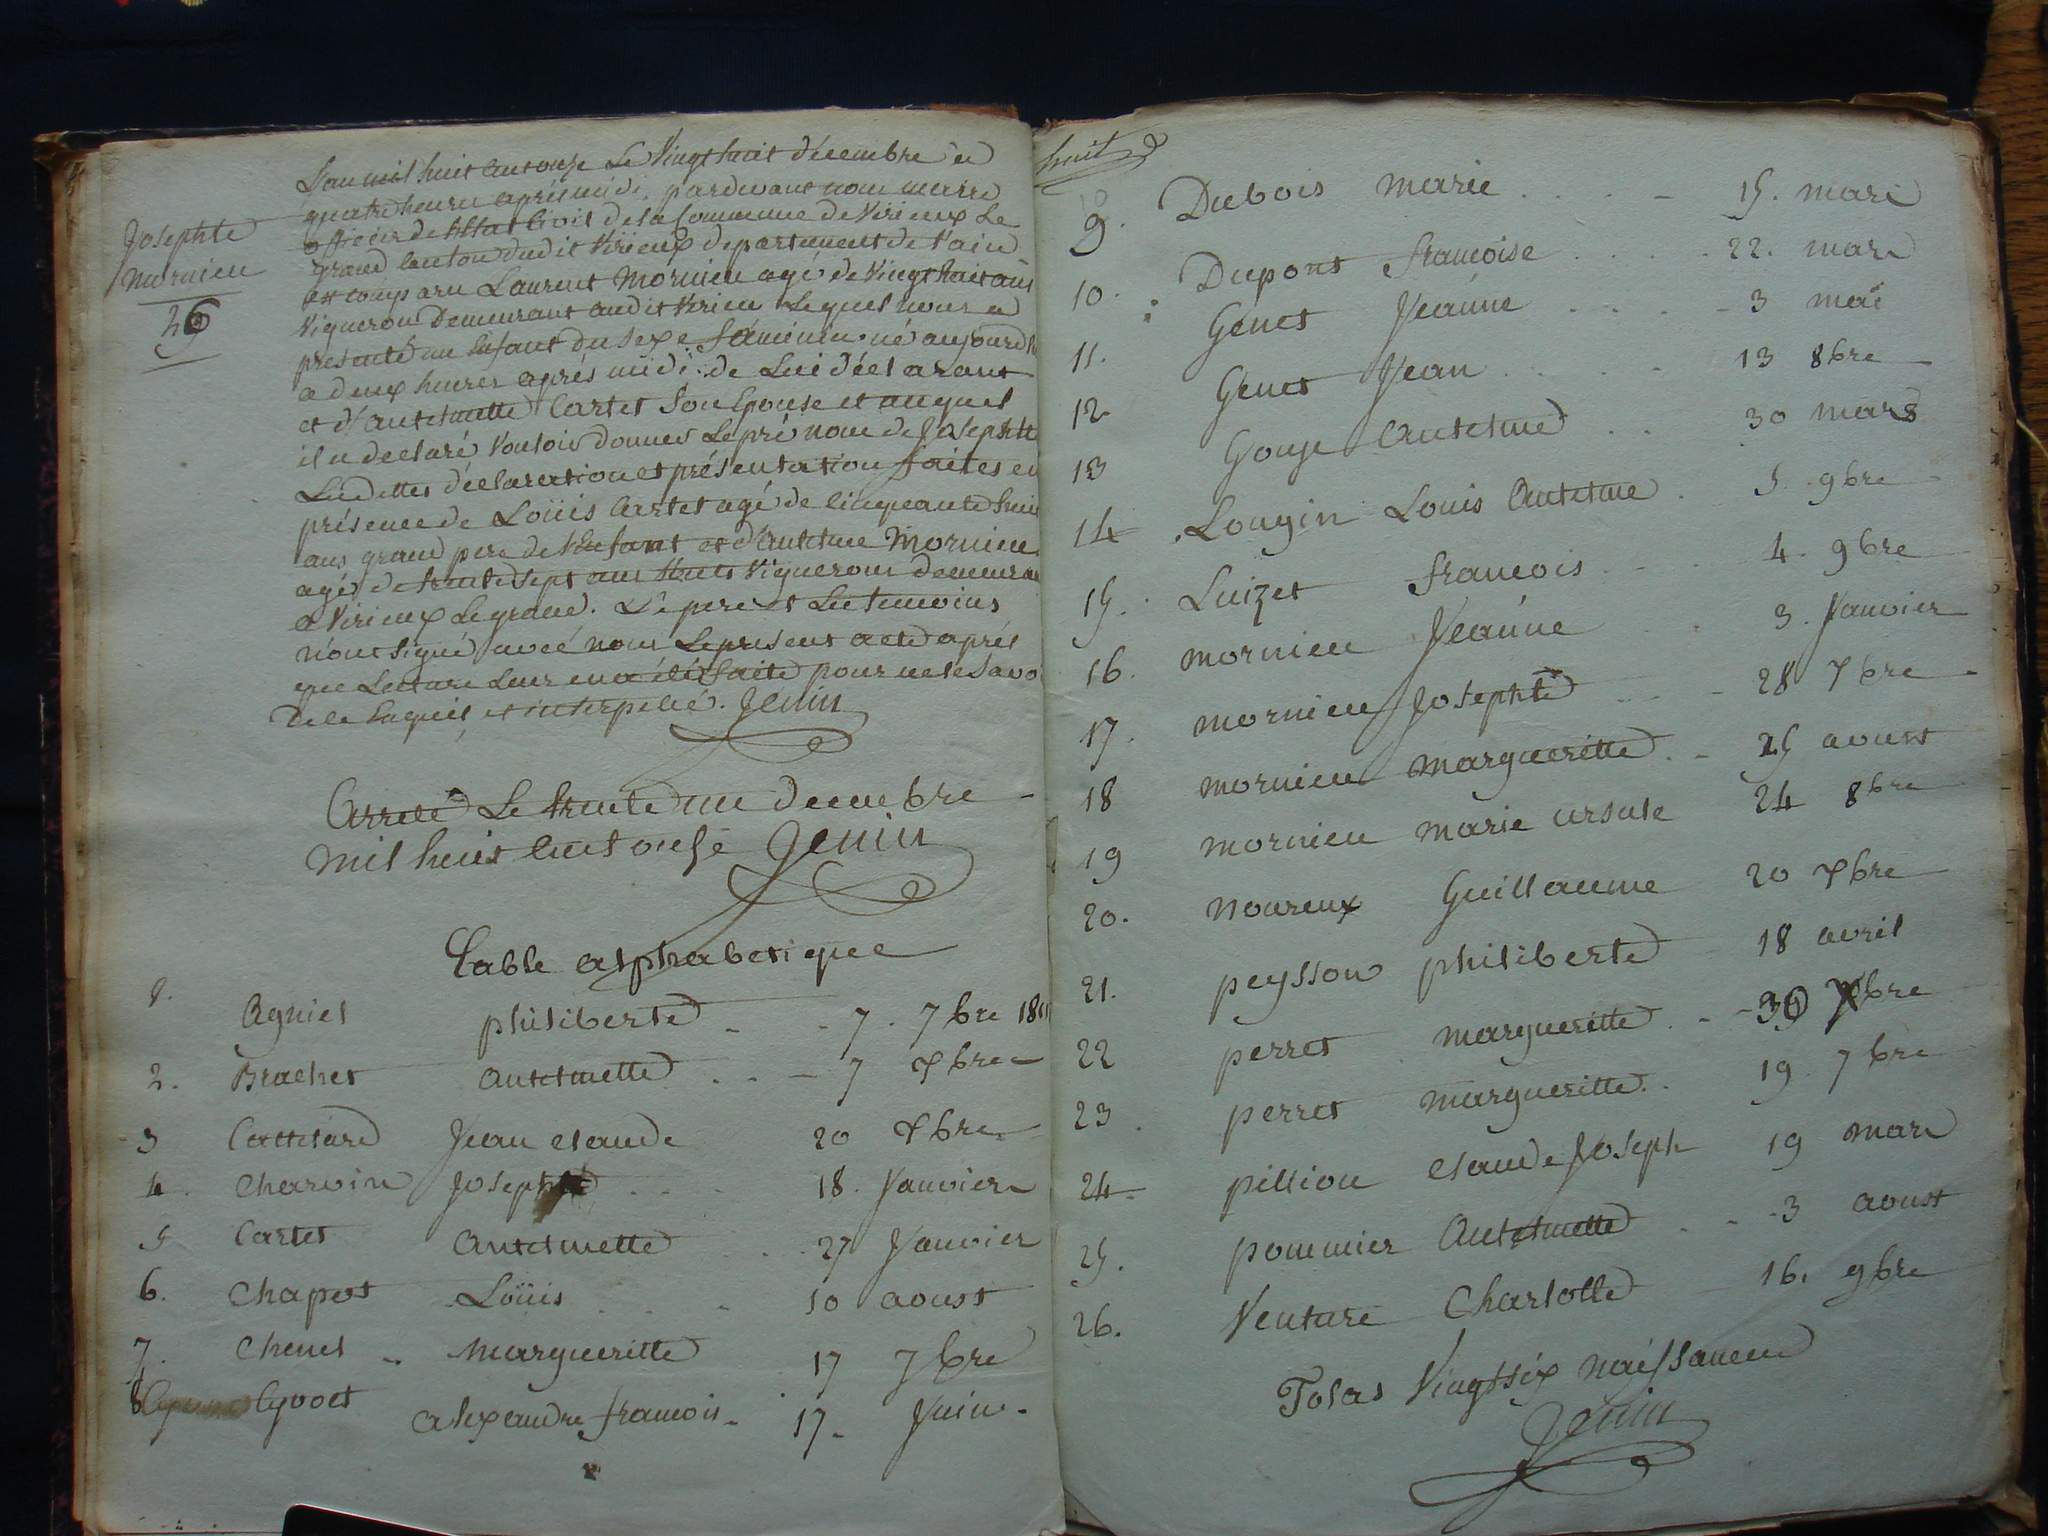 Josephte
mornieu
26
L'an mil huit cent onze Le Vingt huit décembre a
quatre heures après midi, pardevant nous maire
officier de L'Etat Civil de la Commune de Virieux Le
grand Canton dudit Virieux departement de l'ain
est comparu Laurent Mornieu agé de Vingt huit ans
Vigneron Demeurant audit Virieu Lequel nous a
presenté un Enfant du Sexe féminin né aujourd'hui
a deux heures après midi de Lui déclarant
et d'Anthelmette Cartet Son Epouse et auquel
il a declaré Vouloir donner Le pré nom de Josephte
Lesdittes déclaration et présentation faites en
présence de Loüis Cartet agé de Cinquante huit
ans grand pere de l'Enfant et d'Anthelme Mornieu
agé de trente sept ans tous Vignerons demeurant
a Virieux Le grand. Le pere et Les temoins
n'ont signé avec nous Le present acte après
que Lecture Leur en a été faite pour ne le Savoir
De ce Enquis et interpelé. Jenin
Arreté Le trente un decembre
mil huit Cent onze Jenin
Table alphabetique
1. Agniel philiberte 7. 7bre 1811
2. Brachet Anthelmette 7 Xbre
3 Cattelard Jean claude 20 Xbre
4. Charvin Josephte 18. Janvier
5 Cartet Anthelmette 27 Janvier
6. Chapot Loüis 10 aoust
7. Chenel margueritte 17 7bre
8 Cyvoct alexandre francois 17. Juin
huit
9. Dubois marie 15. mars
10. Dupont francoise 22. mars
11. Genet Jeanne 3 mai
12 Genet Jean 13 8bre
13 Gouje Anthelme 30 mars
14 Lougin Louis Anthelme 5 9bre
15. Luizet francois 4. 9bre
16. mornieu Jeanne 3. Janvier
17. mornieu Josephte 28 Xbre
18 mornieu margueritte 25 aoust
19 mornieu marie ursule 24 8bre
20. noureux Guillaume 20 Xbre
21. peysson philiberte 18 avril
22 perret margueritte 30 Xbre
23. perret margueritte 19 7bre
24 pillion claude Joseph 19 mars
25. pommier Anthelmette 3 aoust
26. Venture Charlotte 16. 9bre
Total Vingt six naissances
Jenin